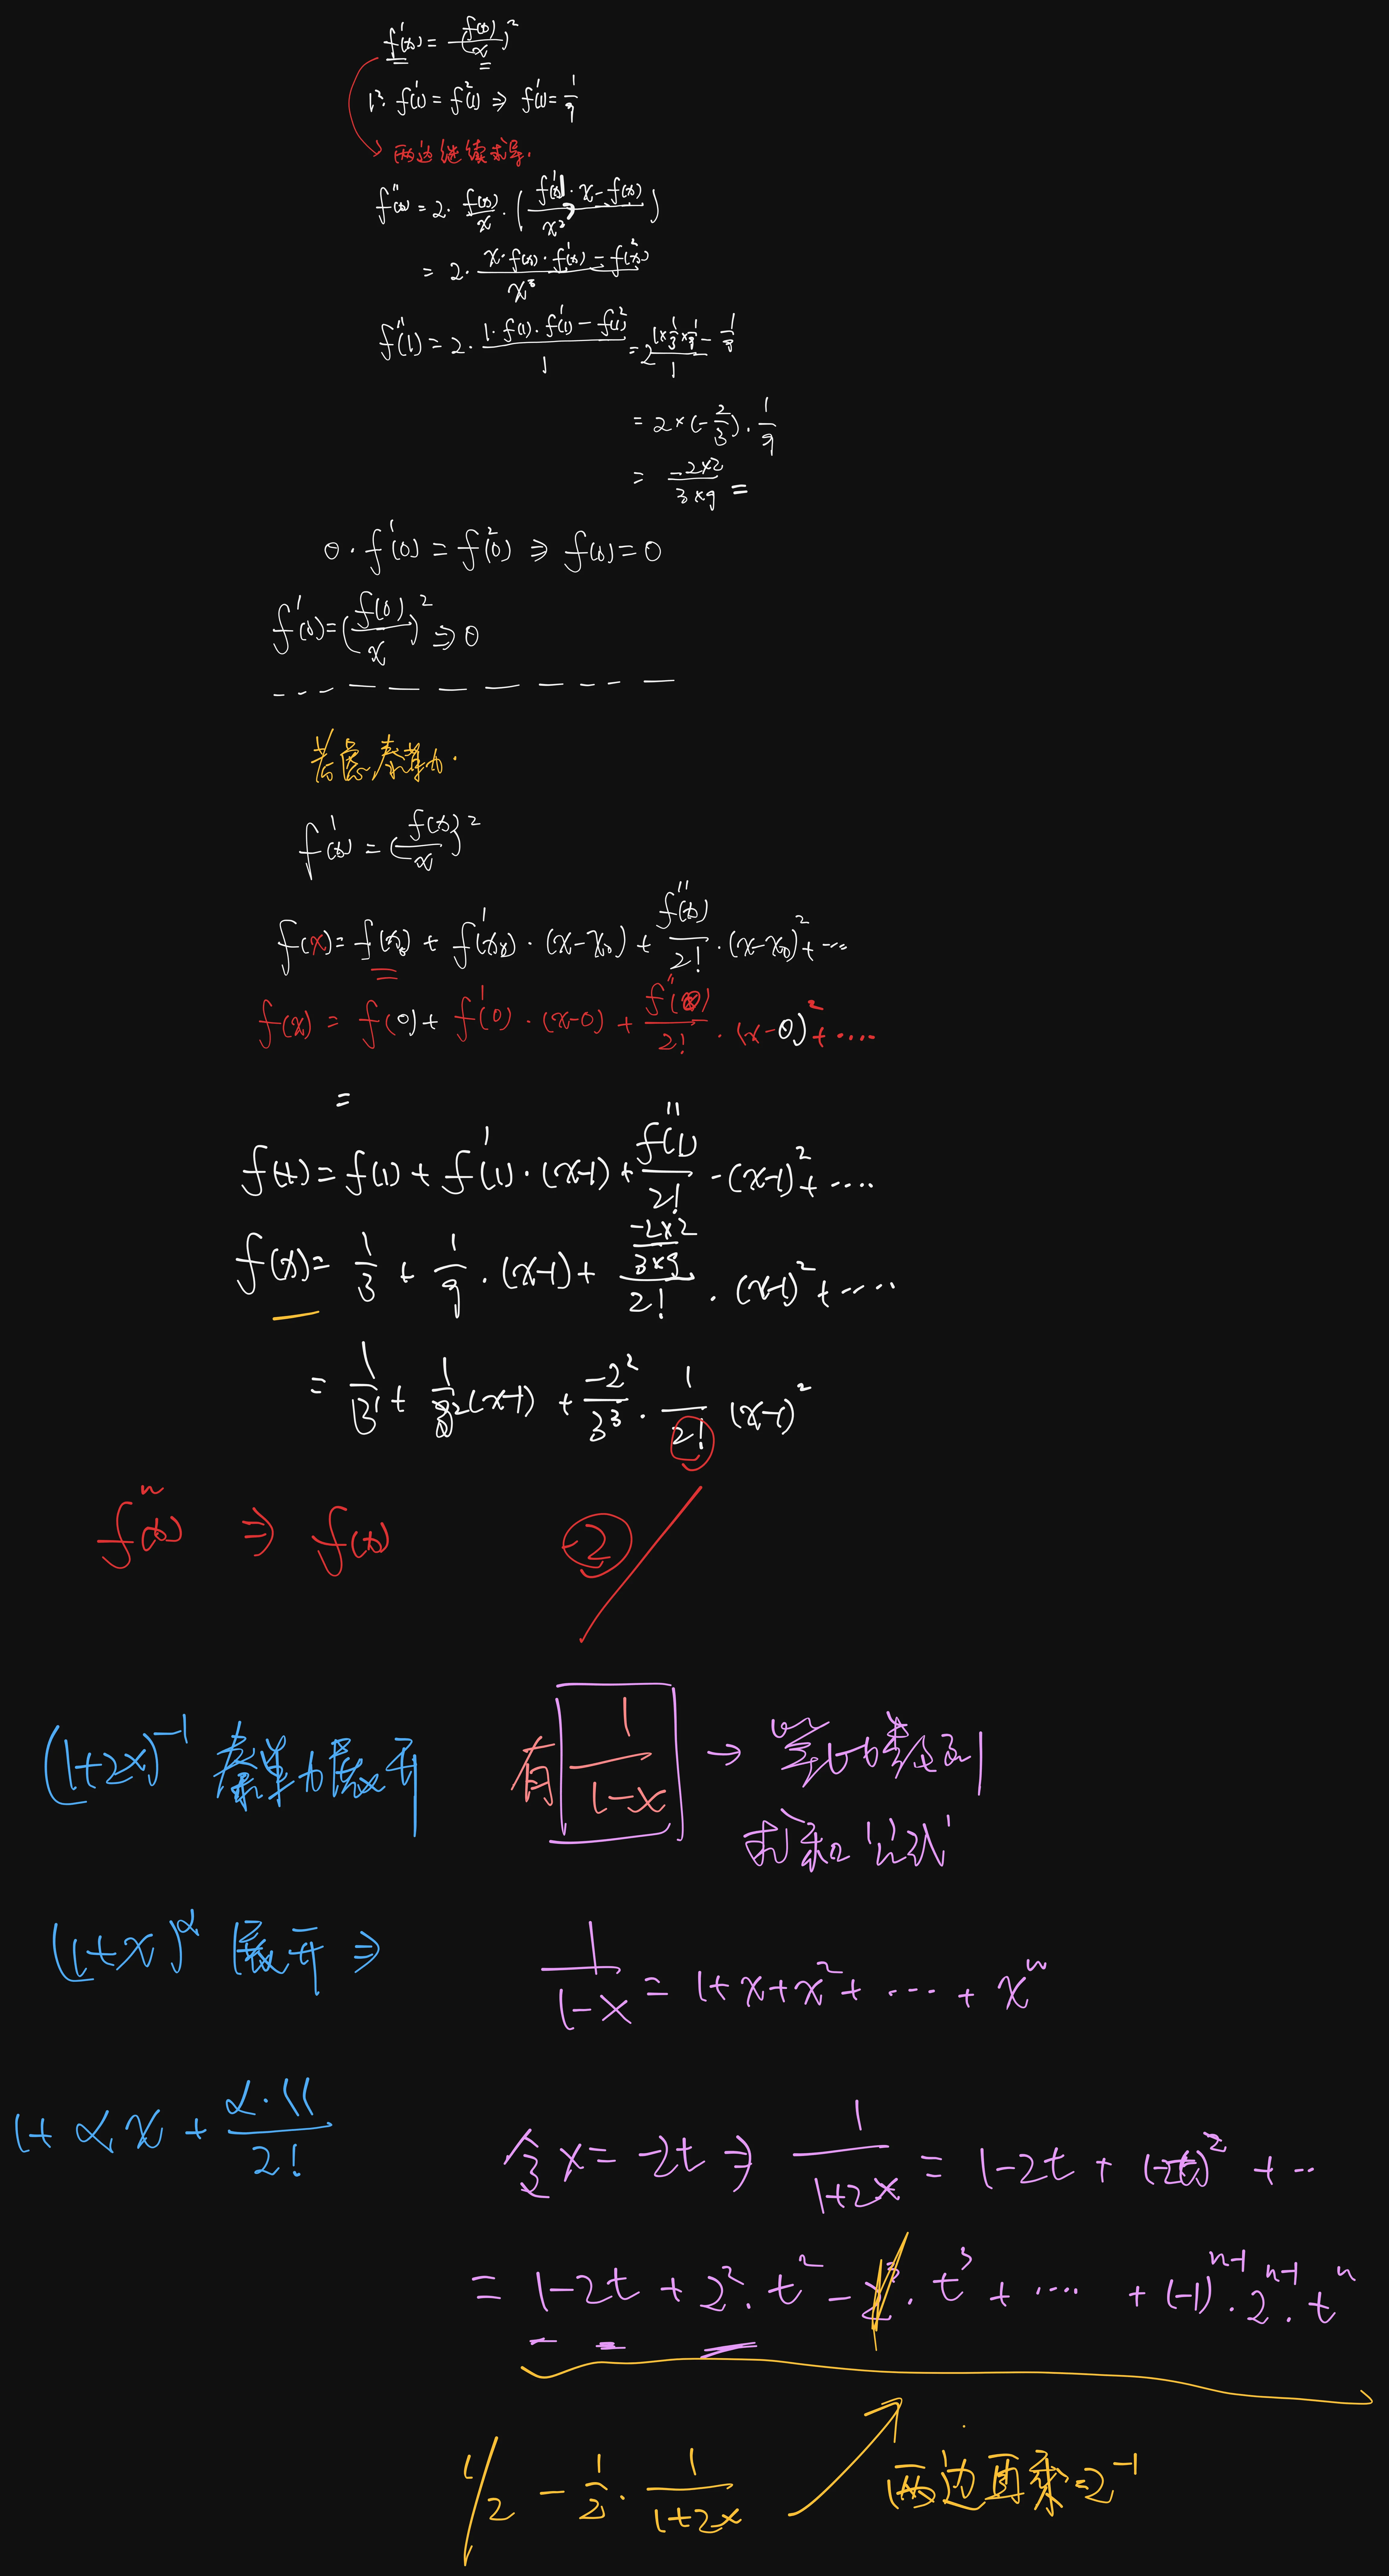 f'(x) = (f(x)/x)²
1²· f'(1) = f²(1) ⇒ f'(1) = 1/9
两边继续求导.
f''(x) = 2· f(x)/x · ( (f'(x)· x - f(x))/x² )
= 2· (x· f(x)· f'(x) - f²(x))/x³
f''(1) = 2· (1· f(1)· f'(1) - f(1)²)/1 = 2 (1×1/3×1/9 - 1/9)/1
= 2×(-2/3)· 1/9
= (-2×2)/(3×9) =
0· f'(0) = f²(0) ⇒ f(0) = 0
f'(0) = (f(0)/x)² ⇒ 0
考虑泰勒.
f'(x) = (f(x)/x)²
f(x) = f(x₀) + f'(x₀)· (x-x₀) + f''(x)/2! · (x-x₀)² + ...
f(x) = f(0) + f'(0)· (x-0) + f''(0)/2! · (x-0)² + ....
=
f(x) = f(1) + f'(1)· (x-1) + f''(1)/2! - (x-1)² + ....
f(x) = 1/3 + 1/9 · (x-1) + ((-2×2)/(3×9))/2! · (x-1)² + .....
= 1/3¹ + 1/3² (x-1) + -2²/3³ · 1/2! (x-1)²
fⁿ(x) ⇒ f(x) -2
(1+2x)⁻¹ 泰勒展开 有 1/(1-x) → 等比数列
求和公式
(1+x)^α 展开 ⇒ 1/(1-x) = 1+x+x²+ ... + xⁿ
1+ αx + α·(( /2! 令 x = -2t ⇒ 1/(1+2x) = 1-2t + (-2t)² + ..
= 1-2t + 2²· t² - 2³· t³ + .... + (-1)ⁿ⁻¹· 2ⁿ⁻¹· tⁿ
1/2 - 1/2 · 1/(1+2x) 两边再乘 2⁻¹